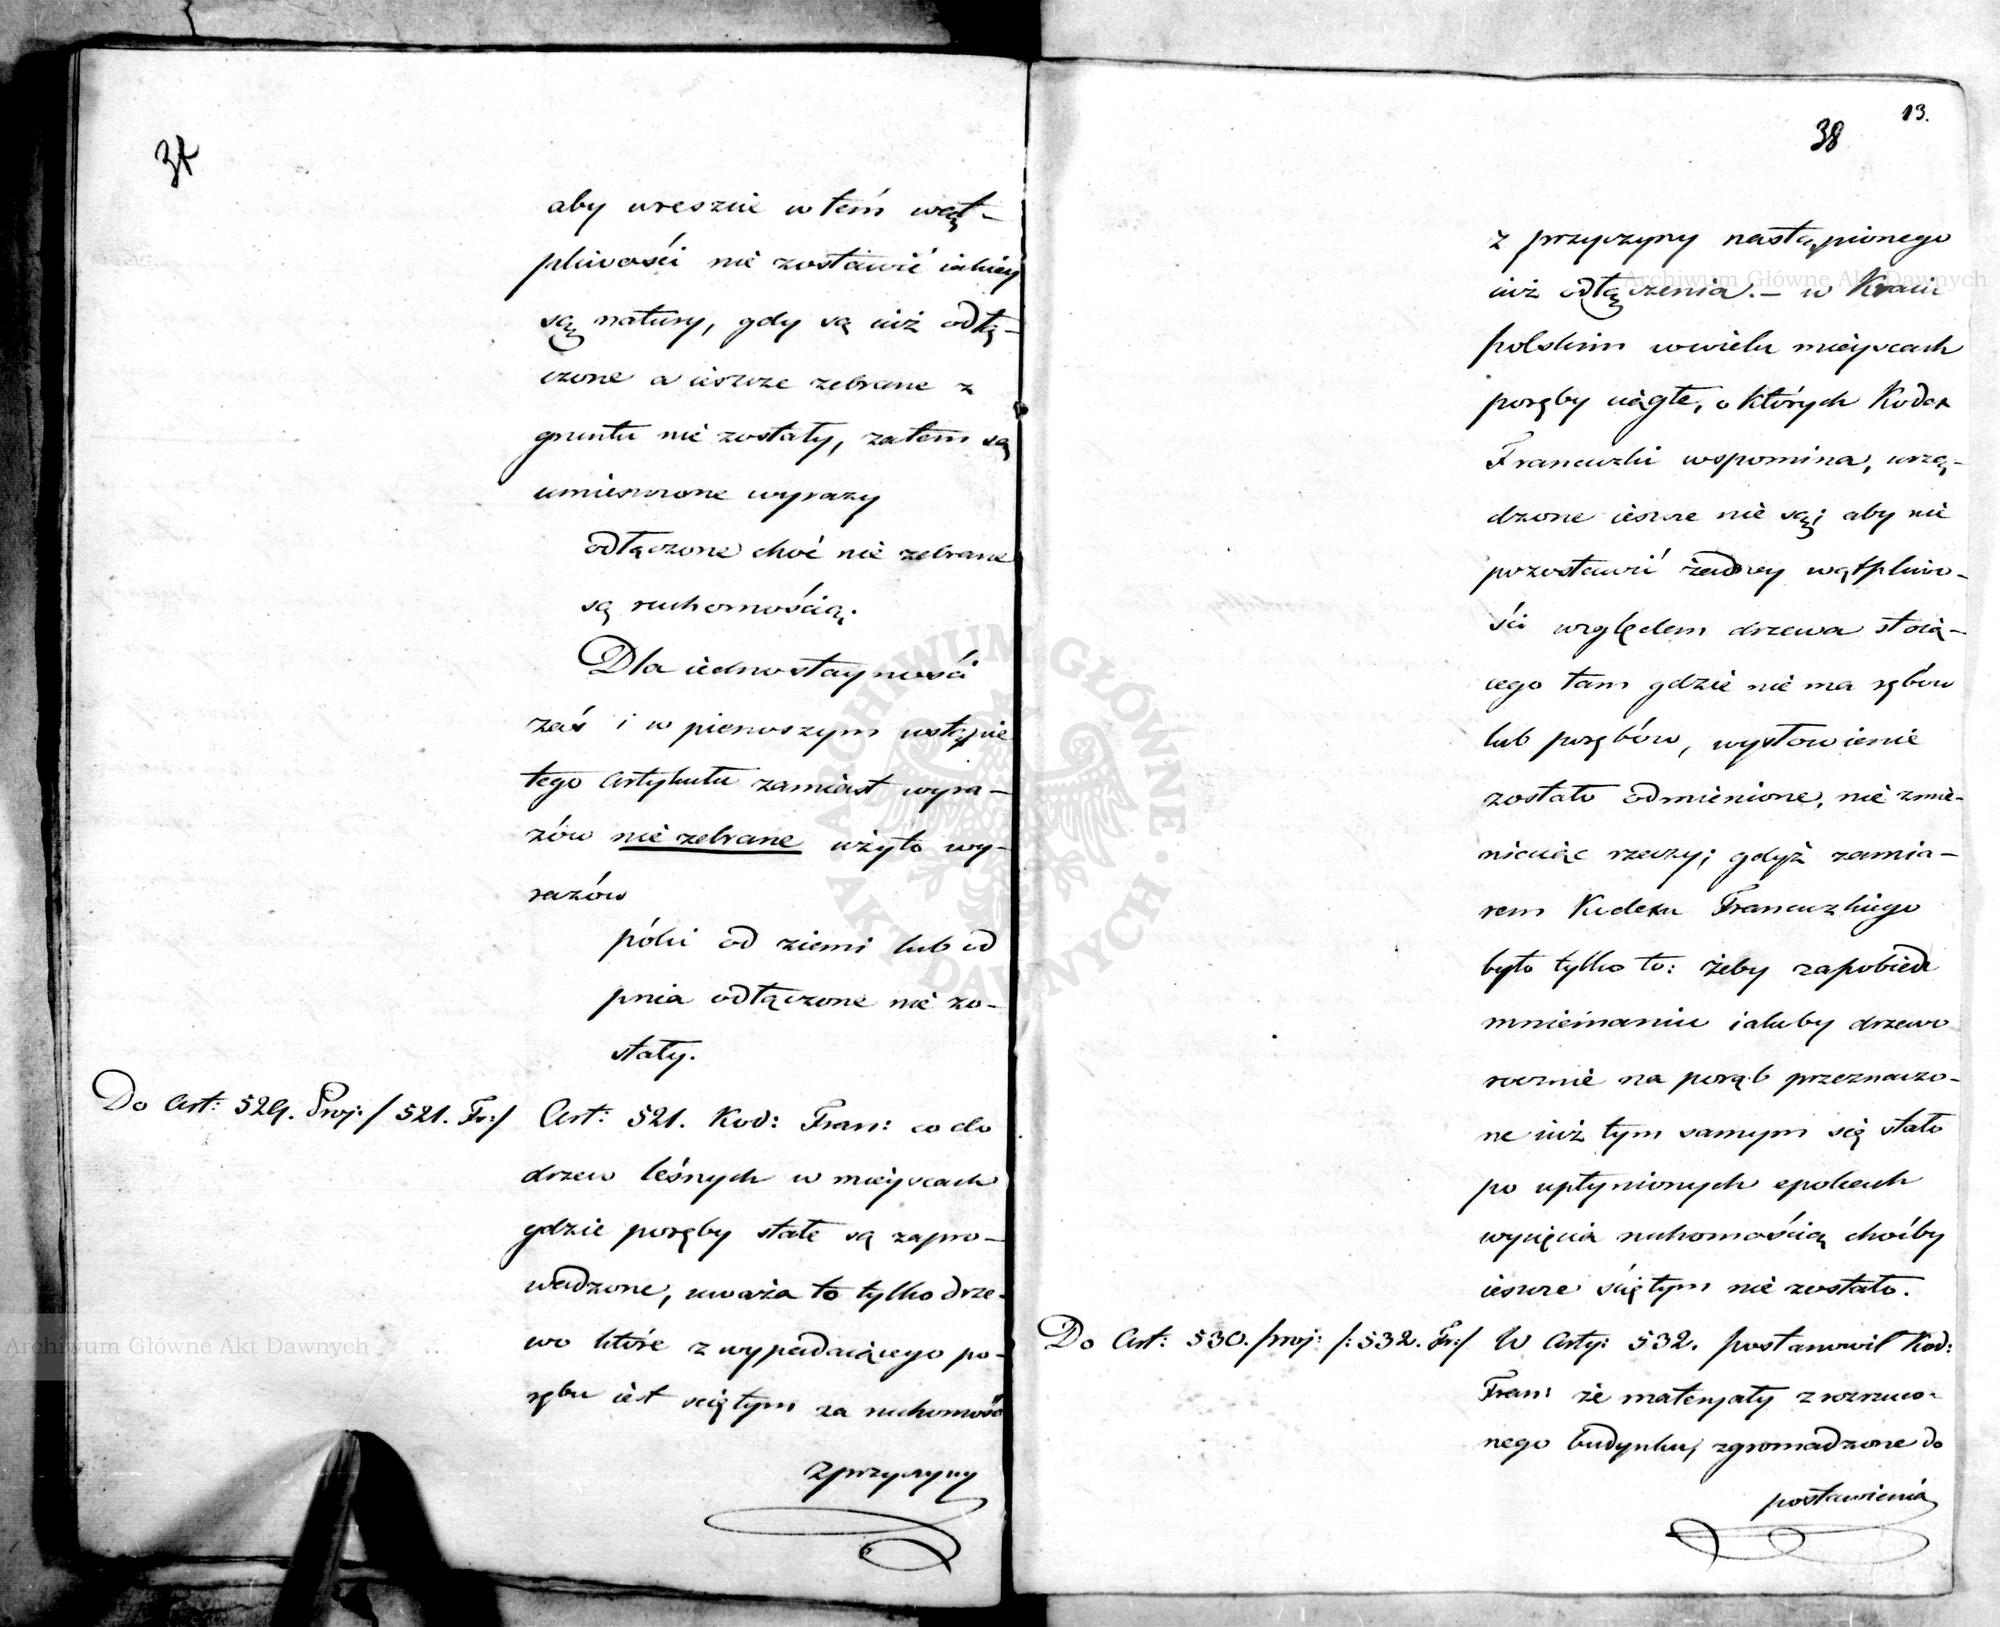 37
aby wreszcie w tém wąt-
pliwości nie zostawić iakiey
są natury, gdy są iuż odłą-
czone a ieszcze zebrane z
gruntu nie zostały, zatem są
umieszczone wyrazy
odłączone choć nie zebrane
są ruchomością;
Dla iednostayności
zaś i w pierwszym ustępie
tego artykułu zamiast wyra-
zów nie zebrane użyto wy-
razów
póki od ziemi lub od
pnia odłączone nie zo-
stały.
Do Art: 529. Proj: / 521. Fr:/ Art: 521. Kod: Fran: co do
drzew leśnych w mieyscach
gdzie poręby stałe są zapro-
wadzone, uważa to tylko drze-
wo które z wypadaiącego po-
rębu iest ściętym za ruchomość
z przyczyny
13.
38
z przyczyny nastąpionego
iuż odłączenia. – w Kraiu
polskim w wielu mieyscach
poręby ciągłe, o których Kodex
Francuzki wspomina, urzą-
dzone ieszcze nie są; aby nie
pozostawić żadney wątpliwo-
ści względem drzewa stoią-
cego tam gdzie nie ma rębów
lub porębów, wysłowienie
zostało odmienione, nie zmie-
niaiąc rzeczy; gdyż zamia-
rem Kodexu Francuzkiego
było tylko to: żeby zapobiedz
mniemaniu iakoby drzewo
rocznie na porąb przeznaczo-
ne iuż tym samym się stało
po upłynionych epokach
wycięcia ruchomością choćby
ieszcze ściętym nie zostało.
Do Art: 530. proj: /: 532. Fr:/ W Arty: 532. postanowił Kod:
Fran: że materyały z rozrzuco-
nego budynku, zgromadzone do
postawienia
Archiwum Główne Akt Dawnych
Archiwum Główne Akt Dawnych
ARCHIWUM GŁÓWNE · AKT DAWNYCH ·